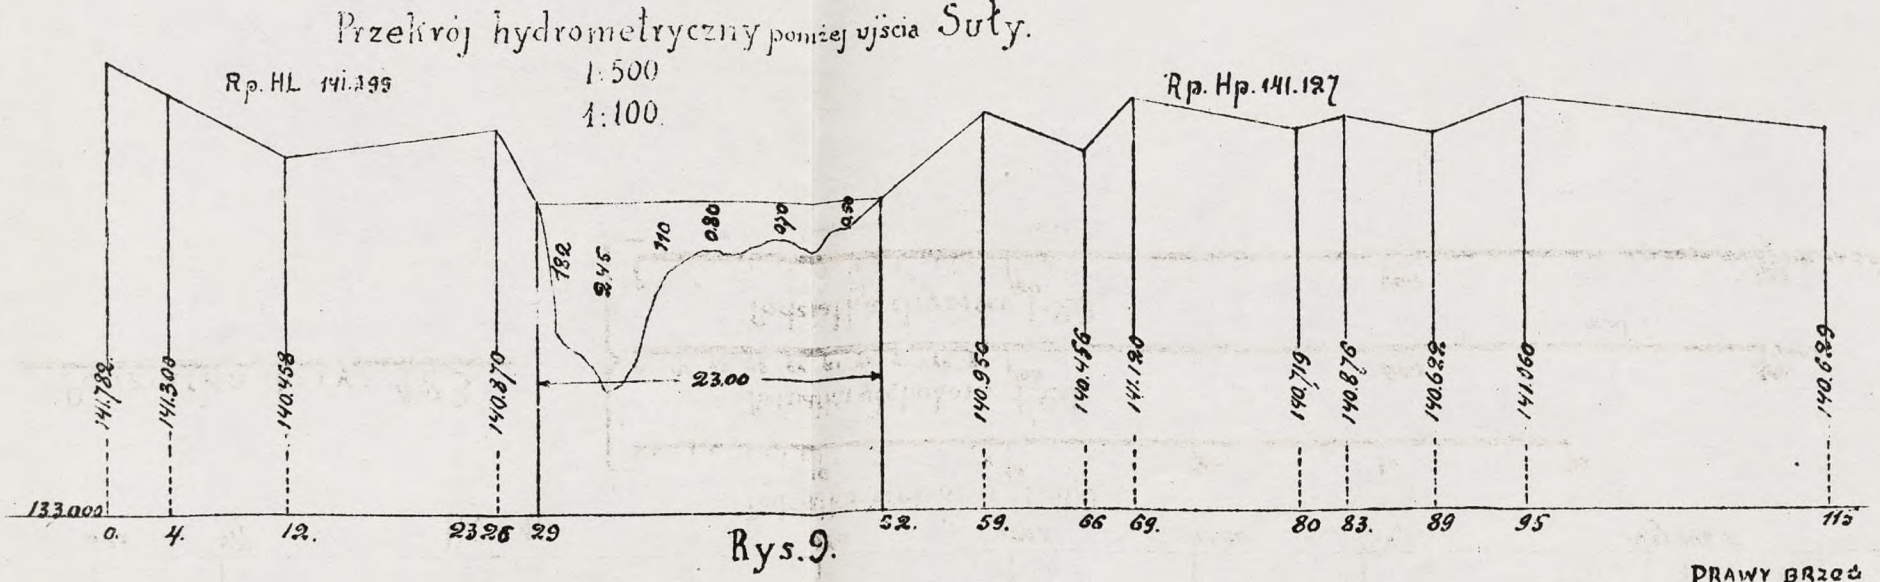 Przekrój hydrometryczny poniżej ujścia Suły.
1:500
1:100.
Rp. HL
Rp. Hp. 141.127
182
2.45
110
0.80
0.70
0.50
23.00
141.782
141.300
140.458
140.870
140.950
140.456
141.120
140.719
140.876
140.622
141.060
140.629
133.000
0. 4. 12. 23 26 29 52. 59. 66 69. 80 83. 89 95 115
Rys.9.
PRAWY BRZEG